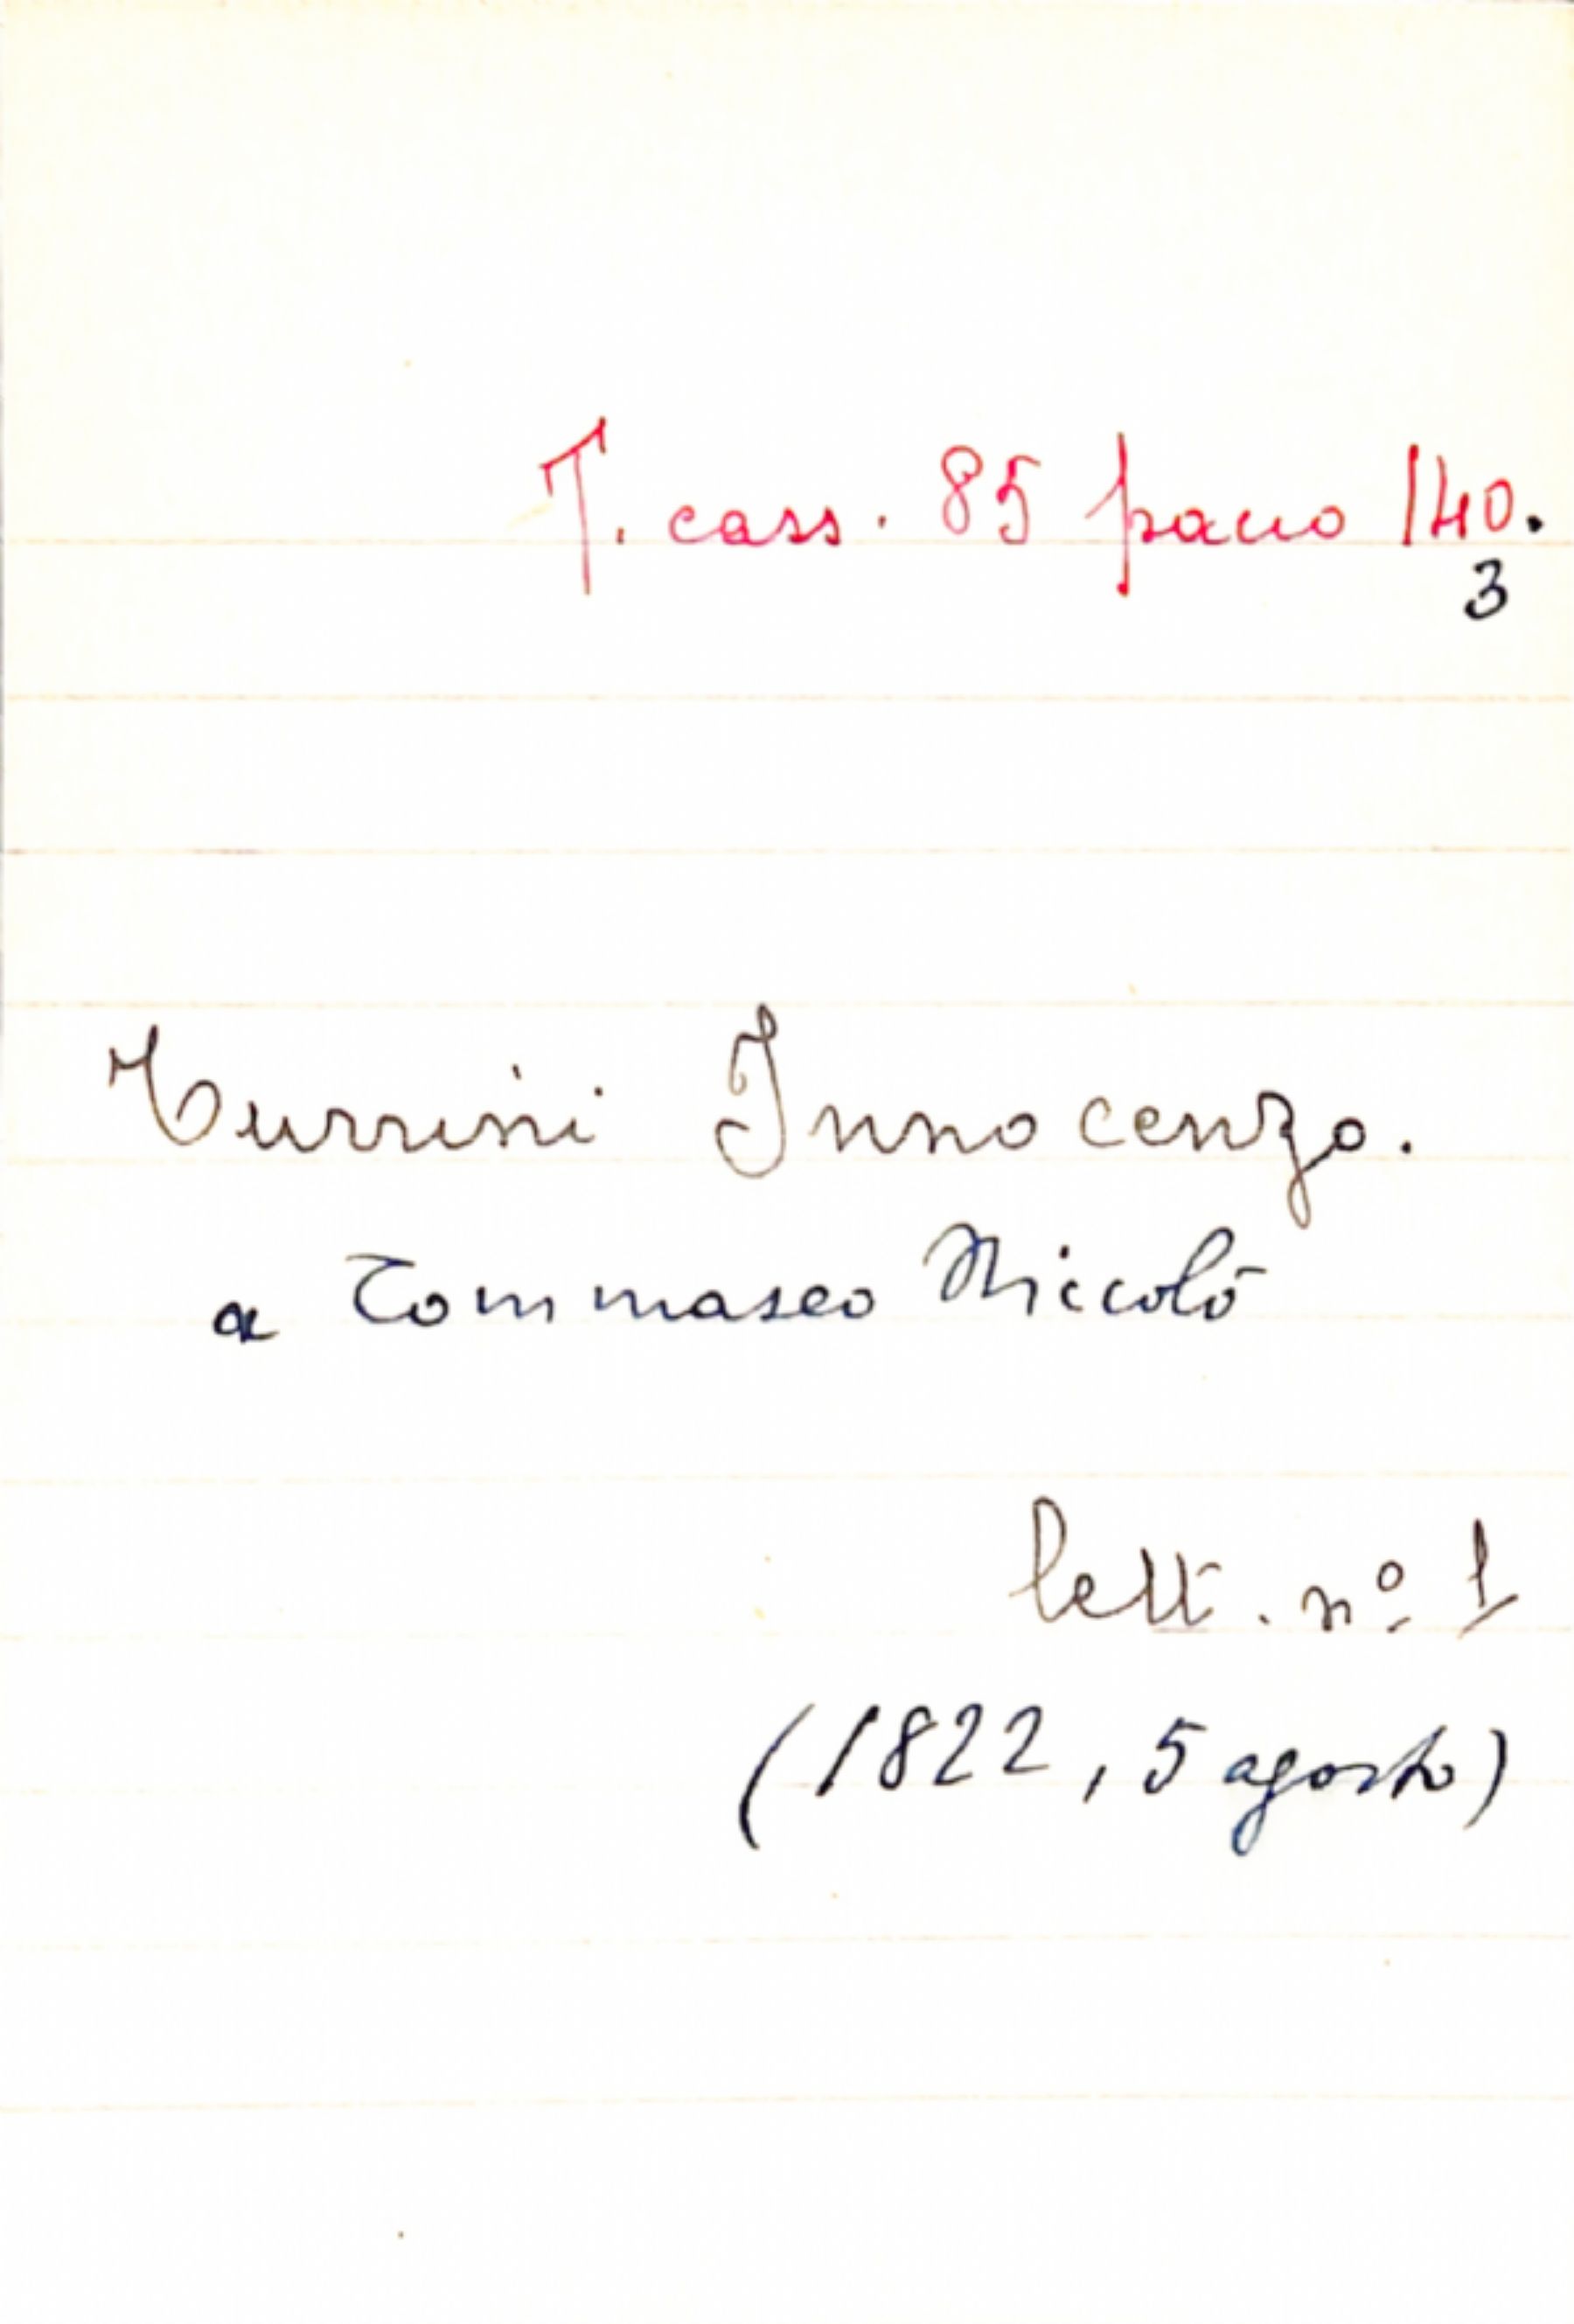 T. cass. 85 pacco 140.
3
Turrini Innocenzo.
a Tommaseo Niccolò
lett. nº 1
(1822, 5 agosto)